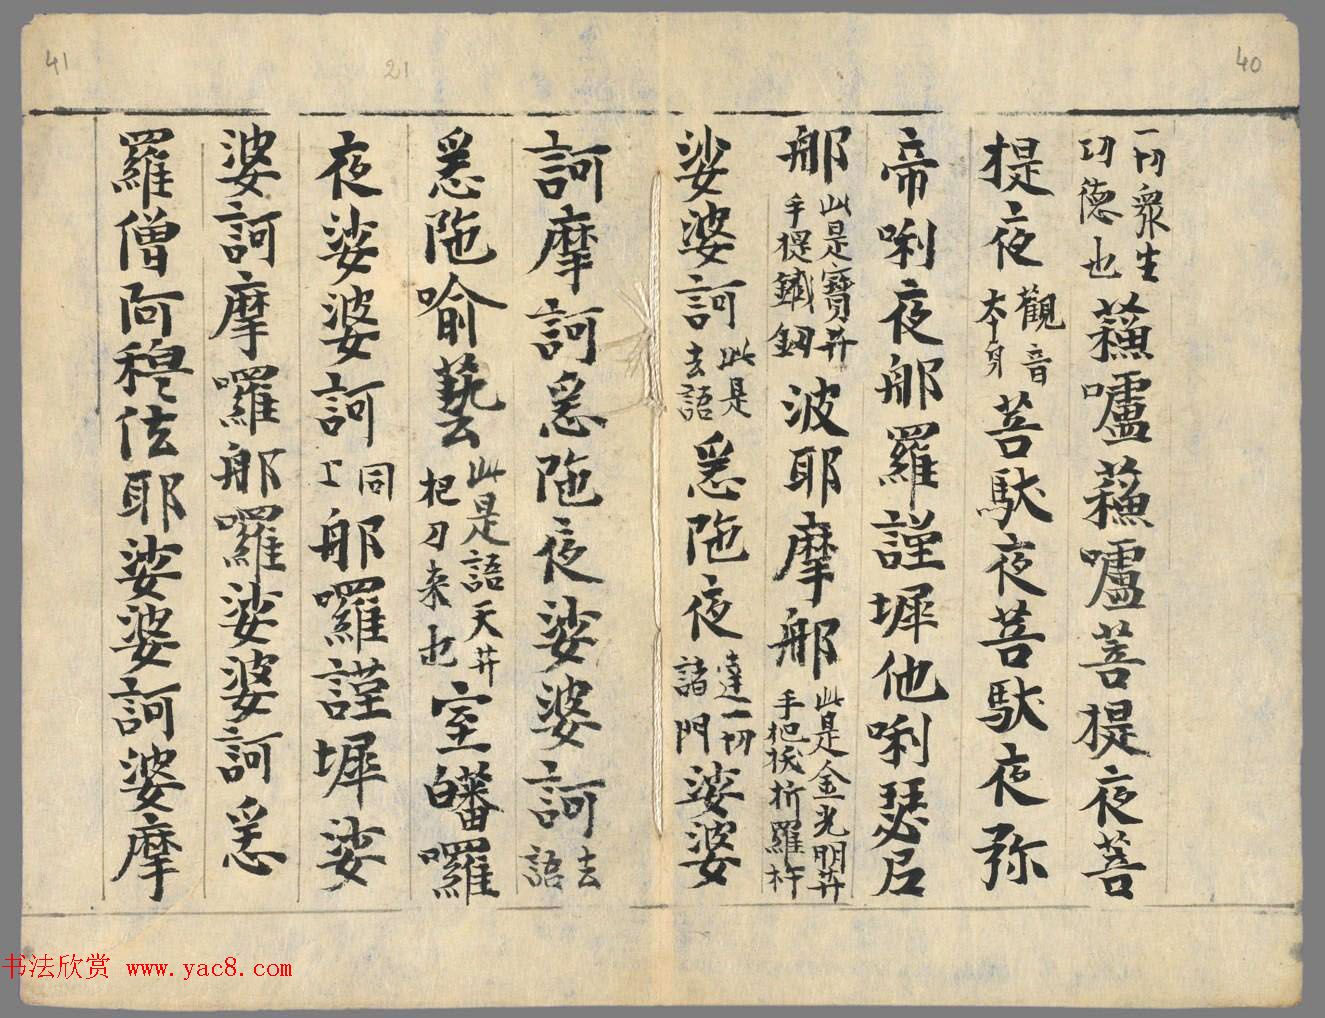 40
一切衆生功德也蘓嚧蘓嚧菩提夜菩
提夜觀音本身菩馱夜菩馱夜弥
帝唎夜那羅謹墀他唎瑟尼
那此是寶井手提鐵釰波耶摩那此是金光明井手把柭折羅杵
娑婆訶此是去語悉陁夜達一切諸門娑婆
訶摩訶悉陁夜娑婆訶去語
悉陁喻藝此是語天井把刀来也室皤囉
夜娑婆訶同上那囉謹墀娑
婆訶摩囉那囉娑婆訶悉
羅僧阿穆佉耶娑婆訶婆摩
21
41
书法欣赏 www.yac8.com